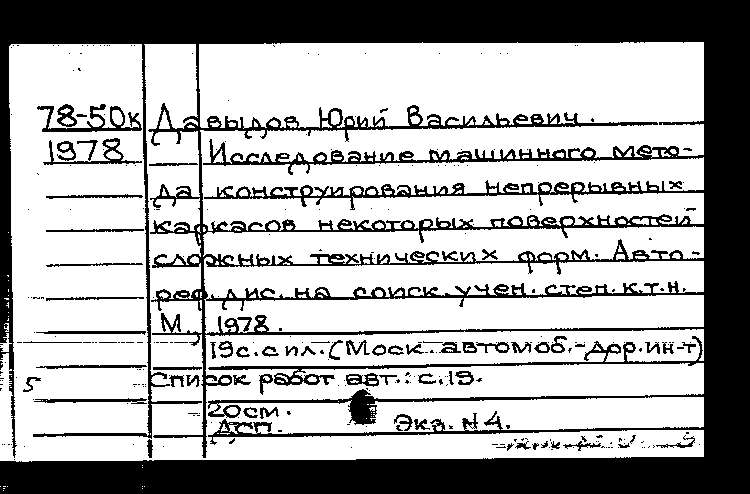 78-50к Давыдов, Юрий Васильевич.
1978 Исследование машинного мето-
да конструирования непрерывных
каркасов некоторых поверхностей
сложных технических форм. Авто-
реф. дис. на соиск. учен. степ. к.т.н.
М., 1978.
19с. с ил. (Моск. автомоб.-дор. ин-т)
5 Список работ авт.: с.19.
20см.
ДСП. Экз. N4.